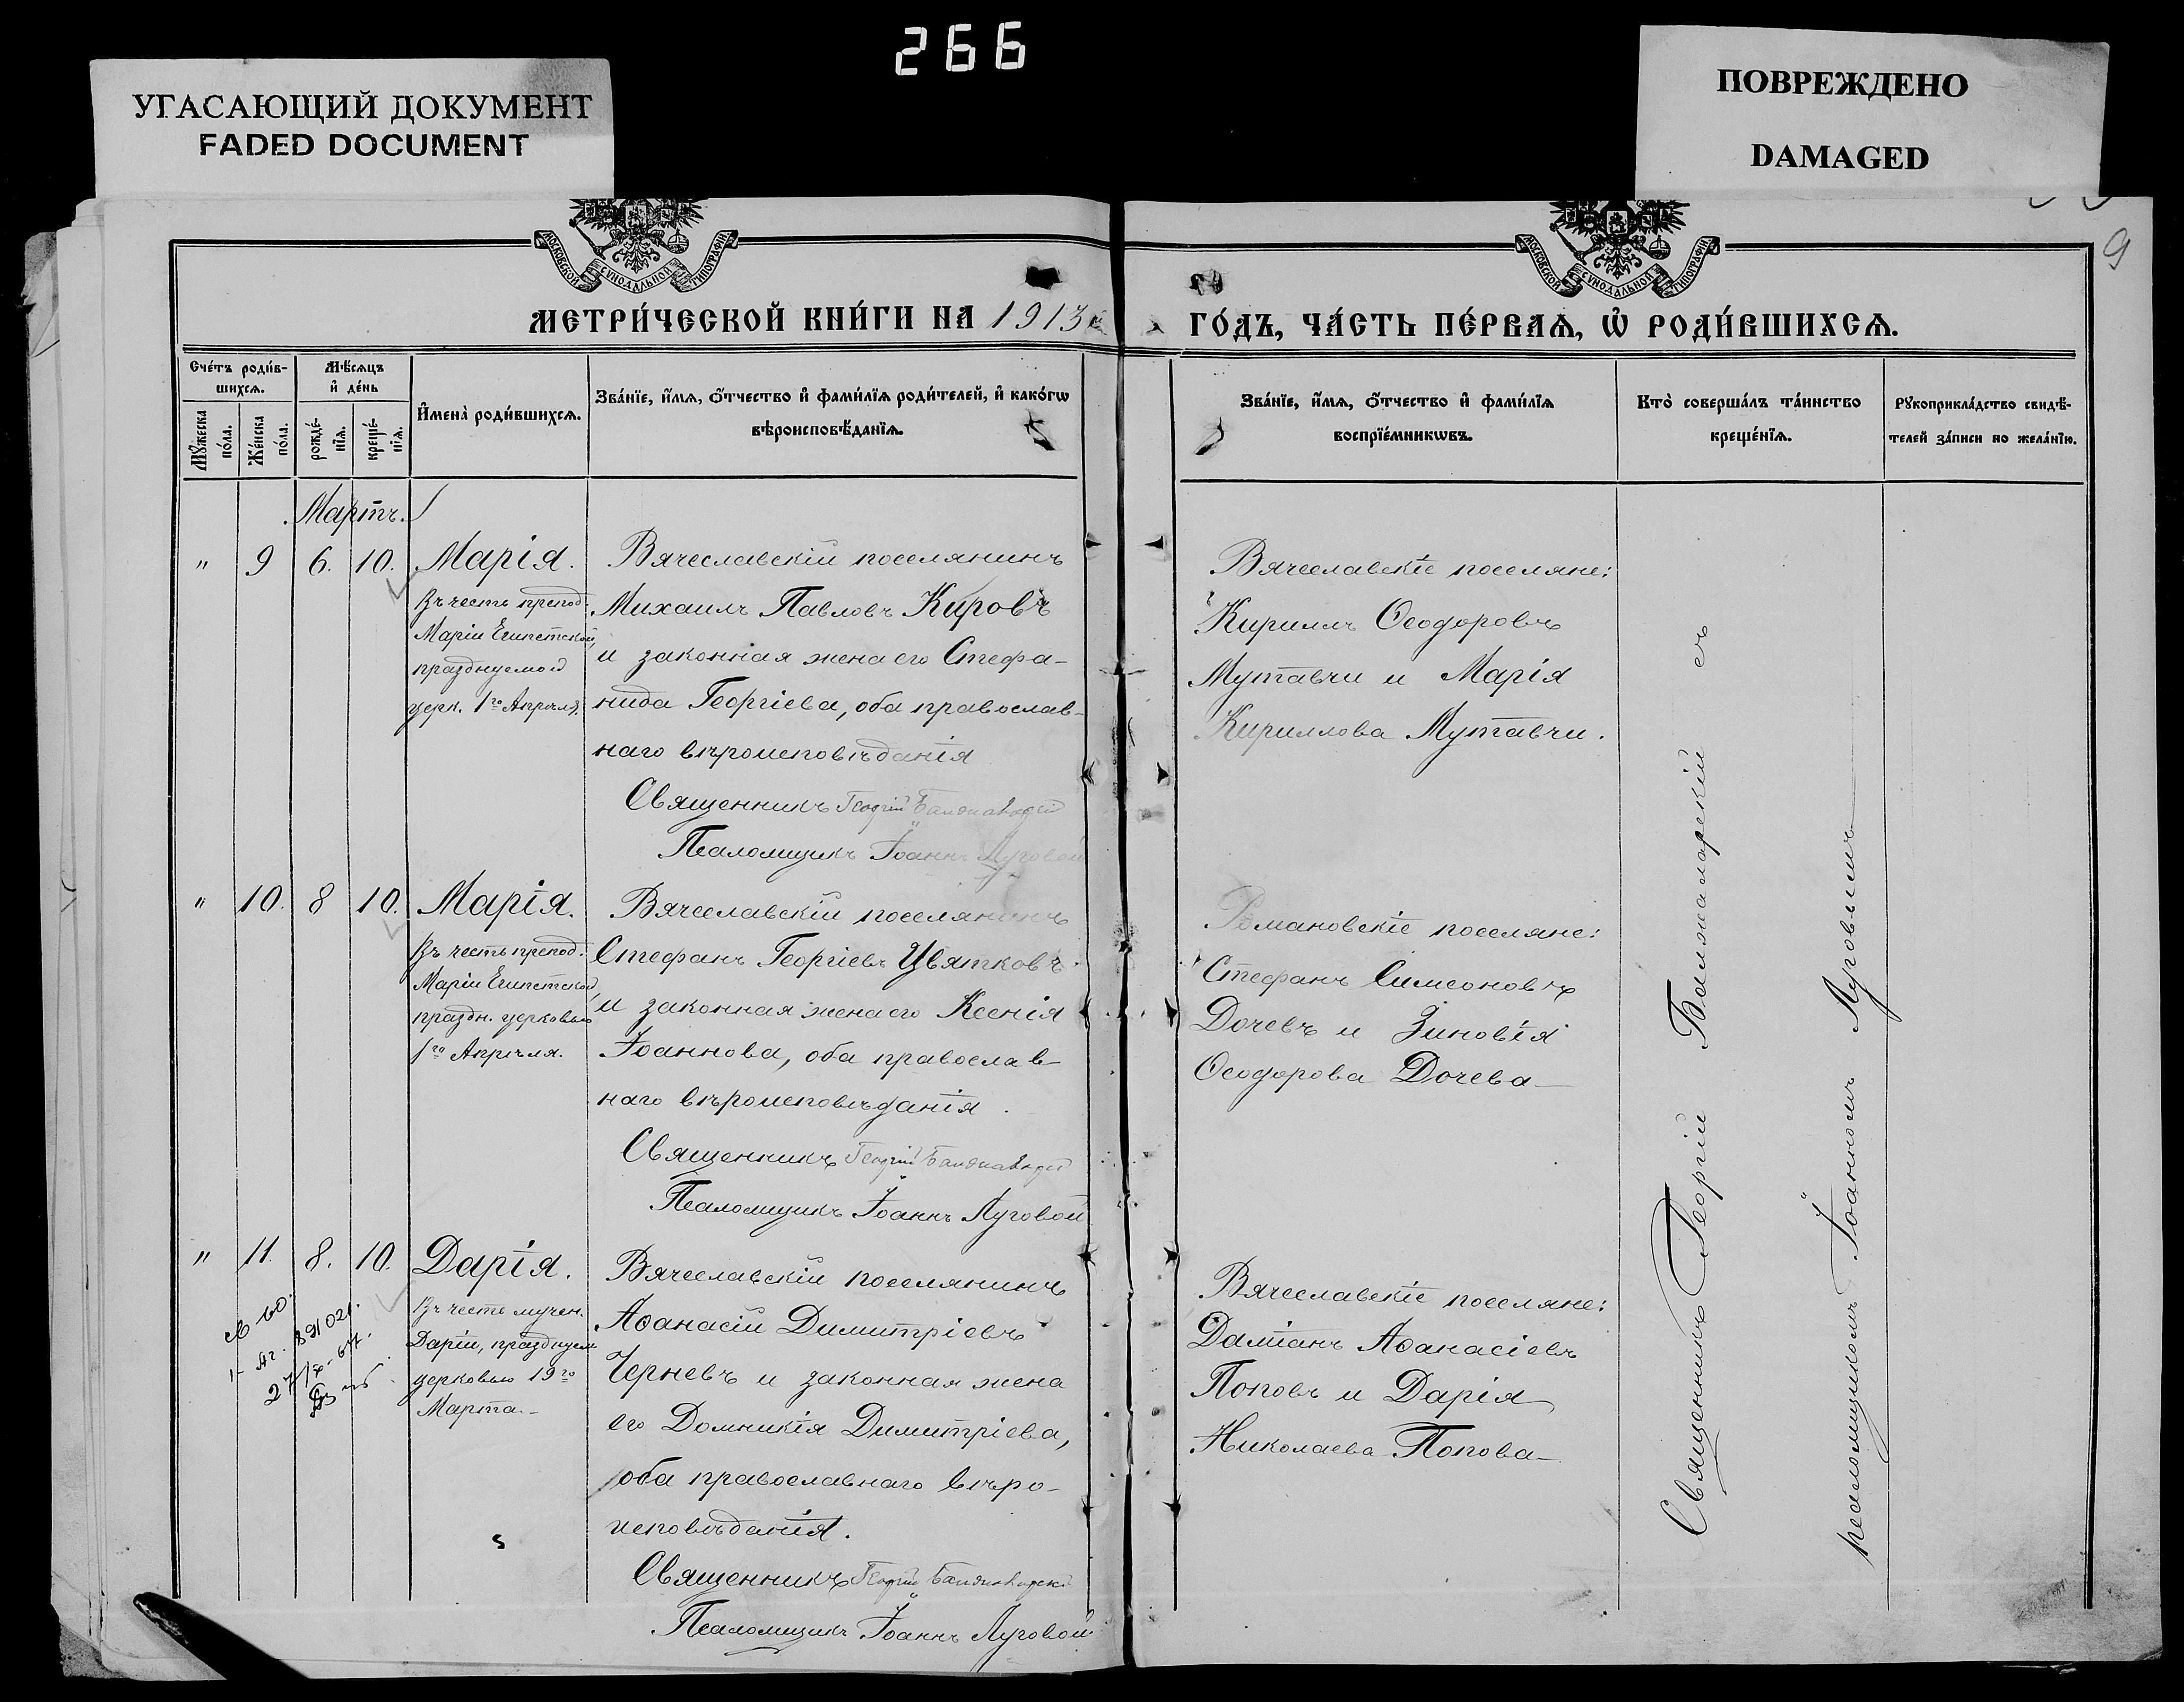 266
УГАСАЮЩИЙ ДОКУМЕНТ
FADED DOCUMENT
ПОВРЕЖДЕНО
DAMAGED
9
МОСКОВСКОЙ СѴНОДАЛЬНОЙ ТИПОГРАФІИ
МОСКОВСКОЙ СѴНОДАЛЬНОЙ ТИПОГРАФІИ
МЕТРИ́ЧЕСКОЙ КНИ́ГИ НА 1913
ГО́ДЪ, ЧА́СТЬ ПЕ́РВАѦ, Ѡ҆ РОДИ́ВШИХСѦ.
Сче́тъ роди́в-
шихсѧ.
Мꙋ́жеска
по́ла.
Же́нска
по́ла.
Мѣ́сѧцъ
и҆ де́нь
рожде́-
нїѧ.
креще́-
нїѧ.
И҆мена̀ роди́вшихсѧ.
Зва́нїе, и҆́мѧ, ѻ҆́тчество и҆ фами́лїѧ роди́телей, и҆ како́гѡ
вѣроисповѣ́данїѧ.
Зва́нїе, и҆́мѧ, ѻ҆́тчество и҆ фами́лїѧ
воспрїе́мникѡвъ.
Кто̀ соверша́лъ та́инство
креще́нїѧ.
Рꙋкоприкла́дство свидѣ́-
телей за́писи по жела́нїю.
Мартъ.
" 9 6. 10. Марія.
Въ честь препод.
Маріи Египетской,
празднуемой
церк. 1го Апрѣля.
Вячеславскій поселянинъ
Михаилъ Павловъ Кировъ
и законная жена его Стефа-
нида Георгіева, оба православ-
наго вѣроисповѣданія
Священникъ Георгій
Псаломщикъ Іоаннъ Луговой
Вячеславскіе поселяне:
Кириллъ Ѳеодоровъ
Мутавчи и Марія
Кириллова Мутавчи.
" 10. 8 10. Марія.
Въ честь препод.
Маріи Египетской,
праздн. церковью
1го Апрѣля.
Вячеславскій поселянинъ
Стефанъ Георгіевъ Цвятковъ
и законная жена его Ксенія
Іоаннова, оба православ-
наго вѣроисповѣданія.
Священникъ Георгій
Псаломщикъ Іоаннъ Луговой
Романовскіе поселяне:
Стефанъ Симеоновъ
Дочевъ и Зиновія
Ѳеодорова Дочева
" 11. 8. 10. Дарія.
Въ честь мучен.
Даріи, празднуем.
церковью 19го
Марта.
Вячеславскій поселянинъ
Аѳанасій Димитріевъ
Черневъ и законная жена
его Домникія Димитріева,
оба православнаго вѣро-
исповѣданія.
Священникъ Георгій
Псаломщикъ Іоаннъ Луговой
Вячеславскіе поселяне:
Даміанъ Аѳанасіевъ
Поповъ и Дарія
Николаева Попова
Священникъ Георгій съ
псаломщикомъ Іоанномъ Луговымъ